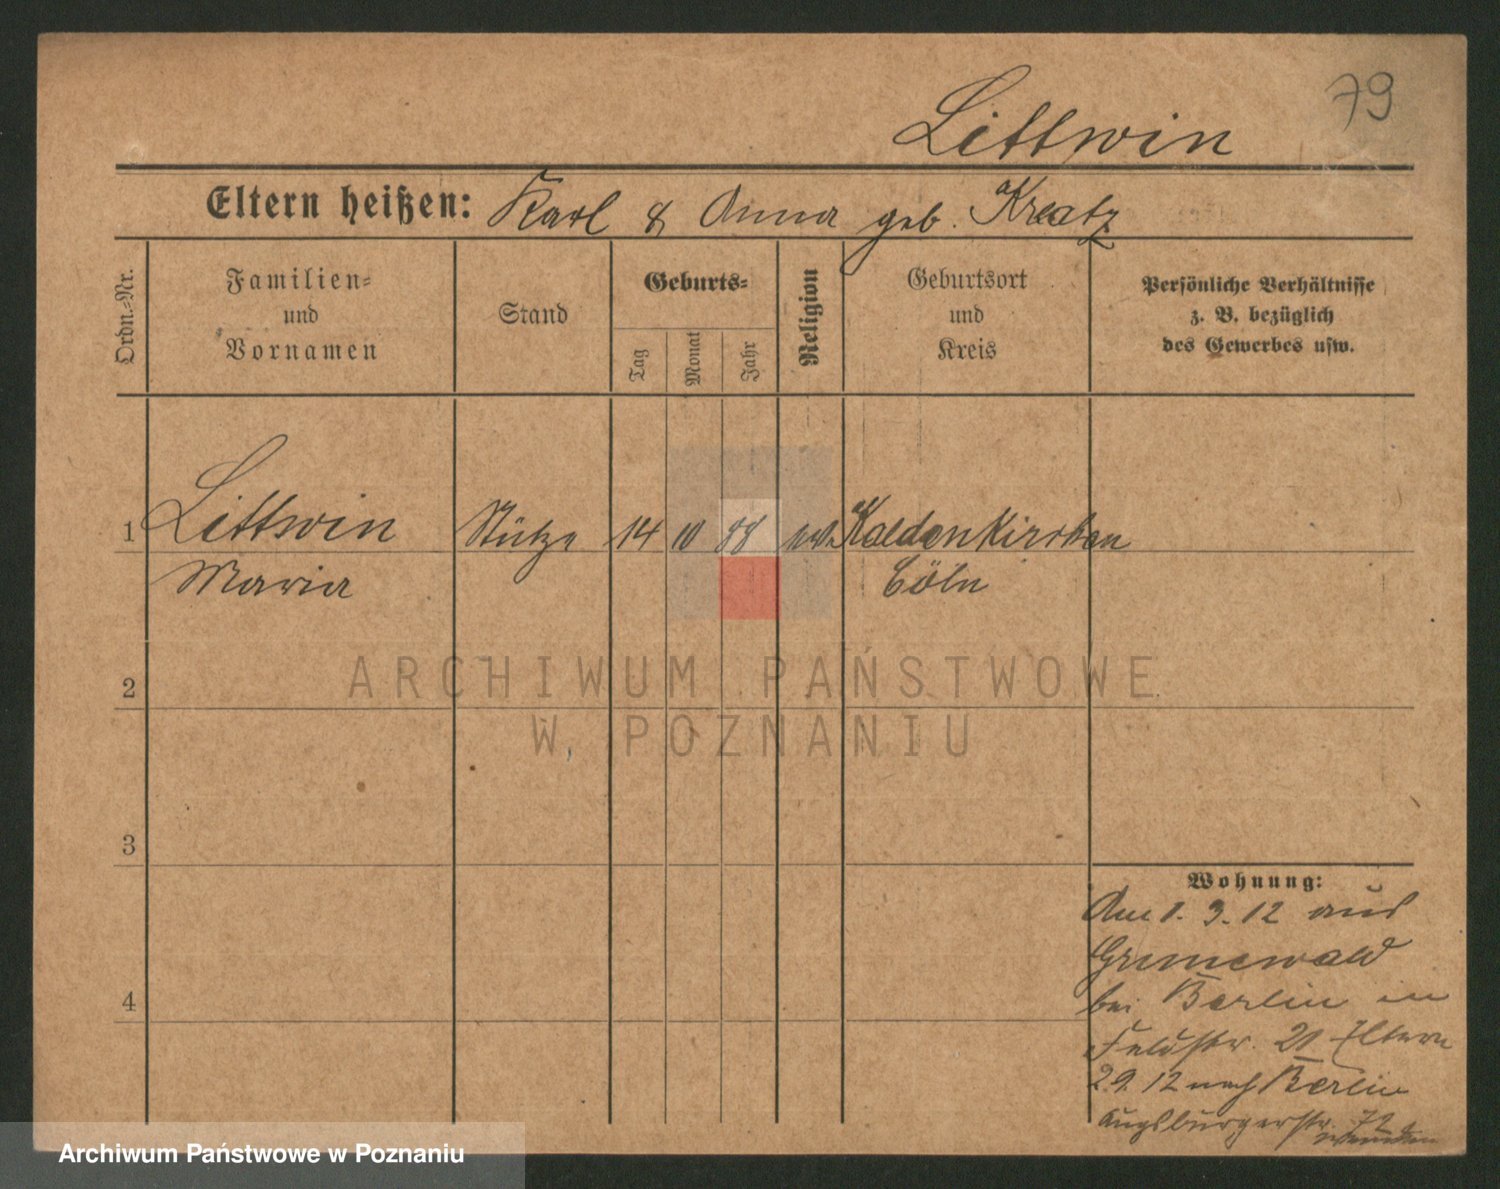 79
Littwin
Eltern heißen: Karl & Anna geb. Kreatz
Ordn.=Nr.
Familien=
und
Vornamen
Stand
Geburts=
Tag
Monat
Jahr
Religion
Geburtsort
und
Kreis
Persönliche Verhältnisse
z. B. bezüglich
des Gewerbes usw.
1
Littwin Stütze 14 10 88 Kaldenkirchen
Maria Cöln
2
3
4
Wohnung:
Am 1. 3. 12 aus
Grunewald
bei Berlin in
Feldstr. 21 Eltern
2.9.12 nach Berlin
Augsburgerstr. 72
ARCHIWUM PAŃSTWOWE
W POZNANIU
Archiwum Państwowe w Poznaniu